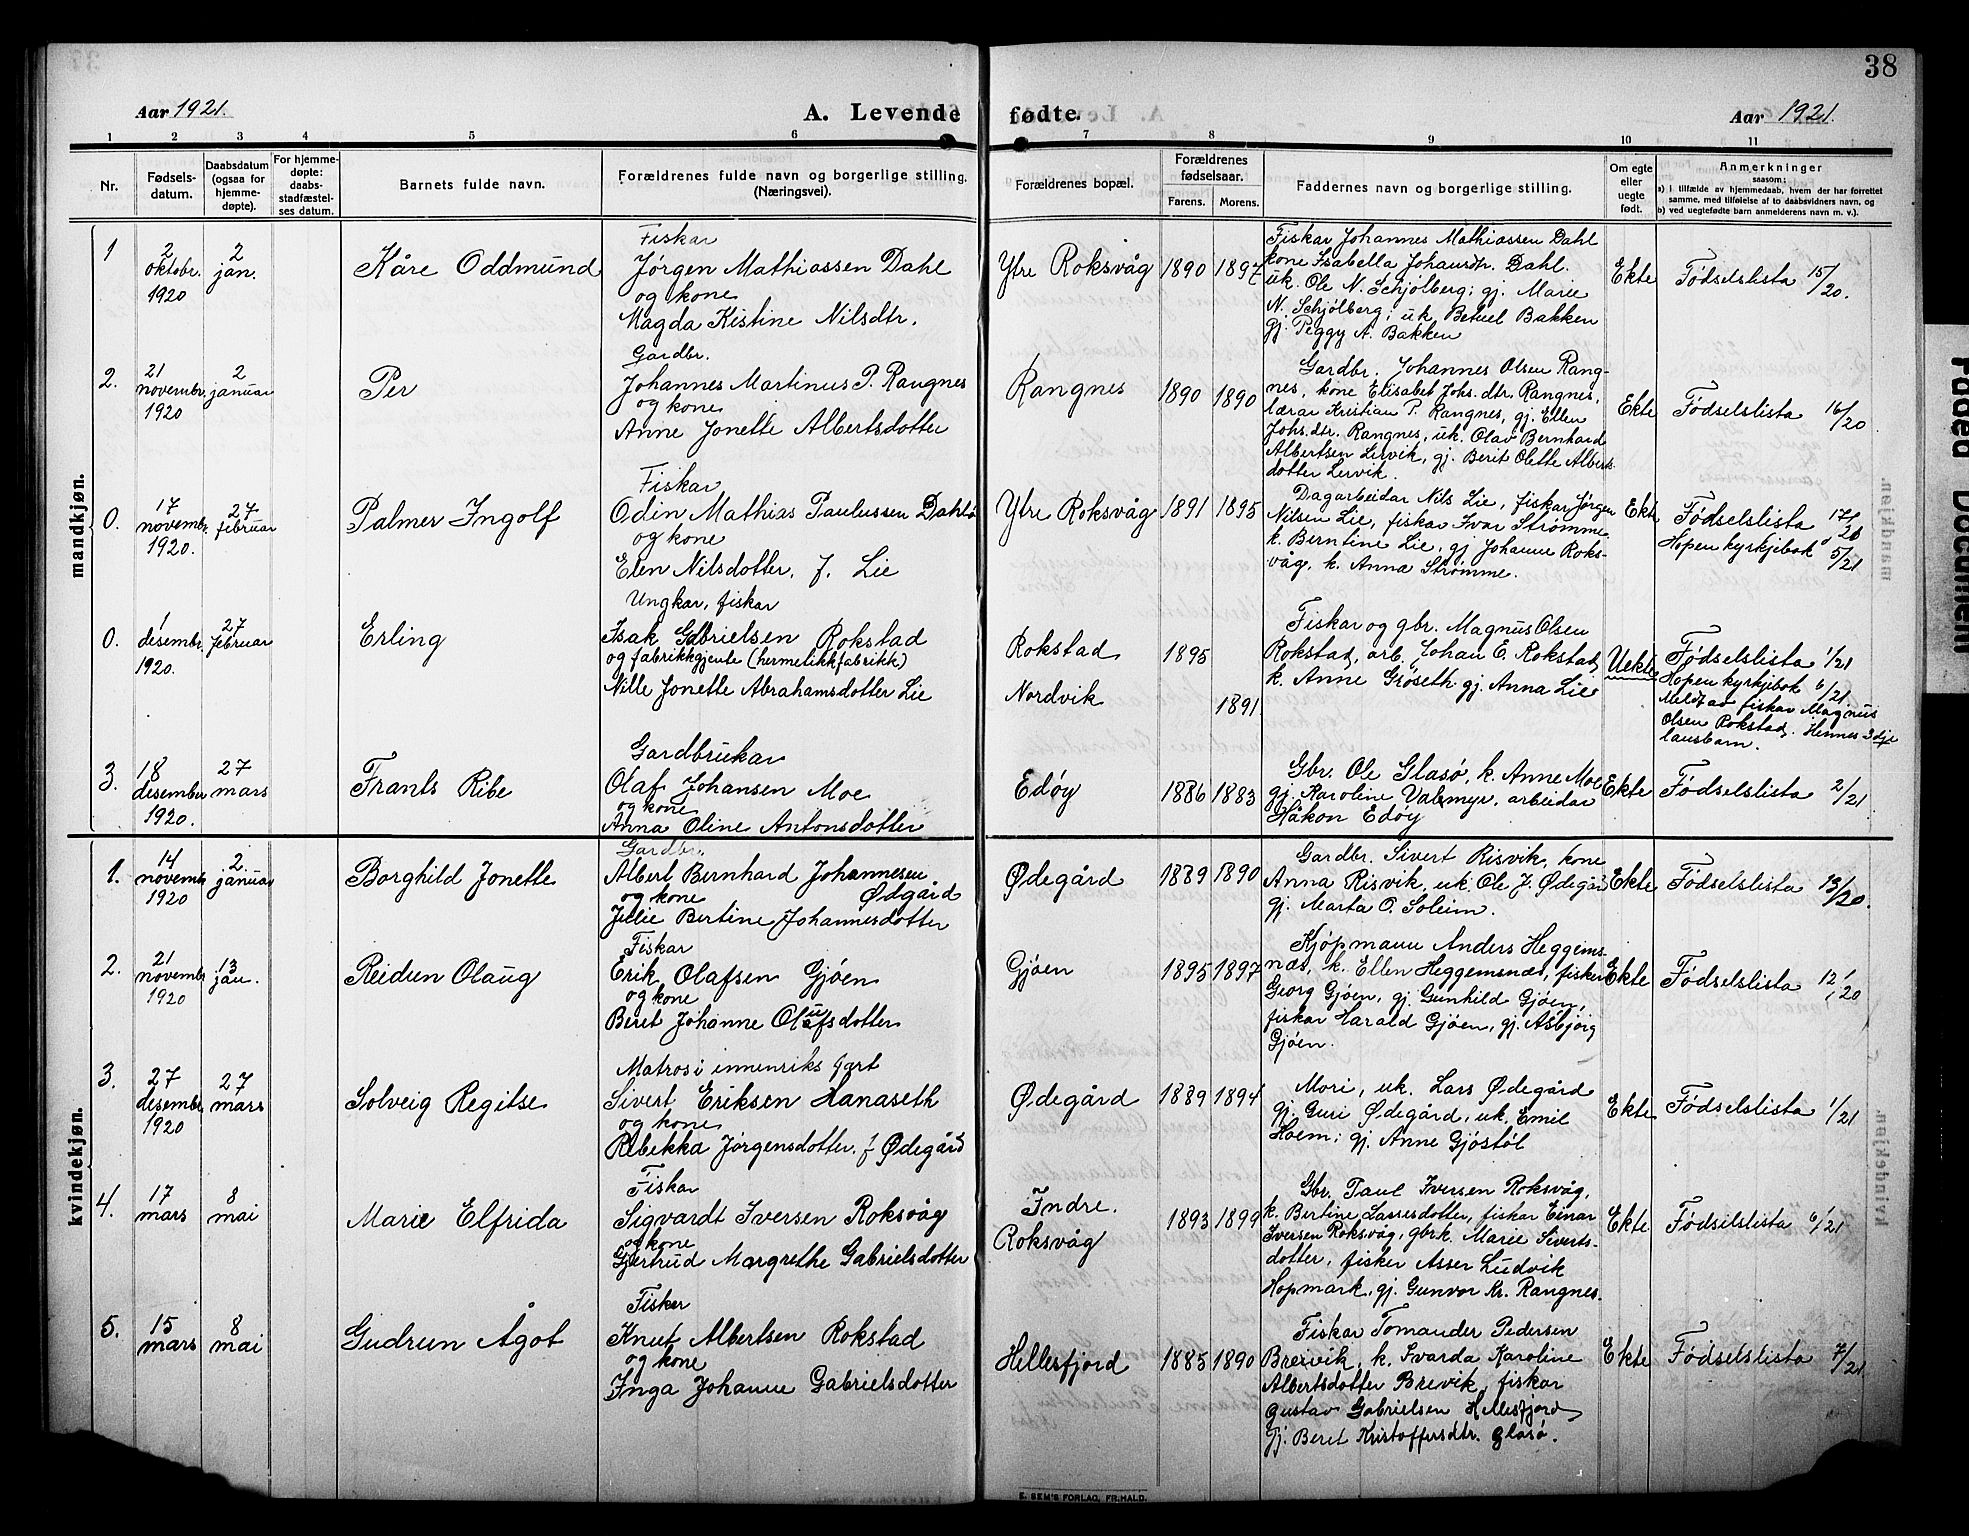 38
Aar 1921.
A. Levende fødte.
Aar 1921.
1 2 3 4 5 6 7 8 9 10 11
Nr.
Fødsels-
datum.
Daabsdatum
(ogsaa for
hjemme-
døpte).
For hjemme-
døpte:
daabs-
stadfæstel-
ses datum.
Barnets fulde navn.
Forældrenes fulde navn og borgerlige stilling.
(Næringsvei).
Forældrenes bopæl.
Forældrenes
fødselsaar.
Farens. Morens.
Faddernes navn og borgerlige stilling.
Om egte
eller
uegte
født.
Anmerkninger
saasom:
a) I tilfælde av hjemmedaab, hvem der har forrettet
samme, med tilføielse af to daabsvidners navn, og
b) ved uegtefødte barn anmelderens navn m. v.).
mandkjøn.
1
2
oktobr.
1920
2
jan.
Kåre Oddmund
Fiskar
Jørgen Mathiassen Dahl
og kone
Magda Kistine Nilsdtr.
Ytre Roksvåg
1890 1897
Fiskar Johannes Mathiassen Dahl
kone Isabella Johansdtr. Dahl.
uk. Ole N. Schjølberg; gj. Marie
N. Schjølberg; uk. Betuel Bakken
gj. Peggy A. Bakken
Ekte
Fødselslista 15/20.
2.
21
novembr.
1920
2
januar
Per
Gardbr.
Johannes Martinus P. Rangnes
og kone
Anne Jonette Albertsdotter
Rangnes
1890 1890
Gardbr. Johannes Olsen Rang-
nes, kone Elisabet Johs.dtr. Rangnes,
lærar Kristian P. Rangnes, gj. Ellen
Johs.dtr. Rangnes, uk. Olav Bernhard
Albertsen Lervik, gj. Berit Olette Alberts-
dotter Lervik.
Ekte
Fødselslista 16/20
0.
17
novembr.
1920.
27
februar
Palmer Ingolf
Fiskar
Odin Mathias Paulussen Dahl
og kone
Elen Nilsdotter, f. Lie
Ytre Roksvåg
1891 1895
Dagarbeidar Nils Lie, fiskar Jørgen
Nilsen Lie, fiskar Ivar Strømme
k. Berntine Lie, gj Johanne Roks-
våg, k. Anna Strømme.
Ekte
Fødselslista 17/20
Hopen kyrkjebok 5/21
0.
1
desembr.
1920.
27
februar
Erling
Ungkar, fiskar
Isak Gabrielsen Rokstad
og fabrikkgjente (hermetikkfabrikk)
Nille Jonette Abrahamsdotter Lie
Rokstad
Nordvik
1895
1891
Fiskar og gbr. Magnus Olsen
Rokstad, arb. Johan E. Rokstad,
k. Anne Grøseth gj. Anna Lie
Uekte
Fødselslista 1/21
Hopen kyrkjebok 6/21
Meldt av fiskar Magnus
Olsen Rokstad. Hennes 3dje
lausbarn.
3.
18
desember
1920.
27
mars
Frants Ribe
Gardbrukar
Olaf Johansen Moe
og kone
Anna Oline Antonsdotter
Edøy
1886 1883
Gbr. Ole Glasø, k. Anne Moe
gj. Karoline Valsmyr, arbeidar
Håkon Edøy
Ekte
Fødselslista 2/21
kvindekjøn.
1.
14
novembr
1920
2
januar
Borghild Jonette
Gardbr.
Albert Bernhard Johannesen
og kone Ødegård
Jellie Bertine Johannesdotter
Ødegård
1889 1890
Gardbr. Sivert Risvik, kone
Anna Risvik, uk. Ole J. Ødegård
gj. Marta O. Soleim.
Ekte
Fødselslista 13/20.
2.
21
novembr
1920
13
jan.
Reidun Olaug
Fiskar
Erik Olafsen Gjøen
og kone
Beret Johanne Olufsdotter
Gjøen
1895 1897
Kjøpmann Anders Heggems-
næs, k. Ellen Heggemsnæs, fiskar
Georg Gjøen, gj. Gunhild Gjøen,
fiskar Harald Gjøen, gj. Asbjørg
Gjøen.
Ekte
Fødselslista 12/20
3.
27
desembr
1920
27
mars
Solveig Regitse
Matros i innenriks fart
Sivert Eriksen Hanaseth
og kone
Rebekka Jørgensdotter, f Ødegård
Ødegård
1889 1894
Mori, uk. Lars Ødegård
gj. Guri Ødegård, uk. Emil
Hoem; gj. Anne Gjøstøl
Ekte
Fødselslista 1/21
4.
17
mars
8
mai
Marie Elfrida
Fiskar
Sigvardt Iversen Roksvåg
og kone
Gjertrud Margrethe Gabrielsdotter
Indre.
Roksvåg
1893 1899
Gbr. Paul Iversen Roksvåg,
k. Bertine Lassesdotter, fiskar Einar
Iversen Roksvåg, gbrk. Marie Siverts-
dotter, fisker Asser Ludvik
Hopmark, gj. Gunvor Kr. Rangnes.
Ekte
Fødselslista 6/21
5.
15
mars
8
mai
Gudrun Ågot
Fisker
Knut Albertsen Rokstad
og kone
Inga Johanne Gabrielsdotter
Hellesfjord
1885 1890
Fiskar Tomander Pedersen
Breivik, k. Svarda Karoline
Albertsdotter Brevik, fiskar
Gustav Gabrielsen Hellesfjord
gj. Beret Kristoffersdtr. Glasø.
Ekte
Fødselslista 7/21
E. SEM'S FORLAG, FR.HALD.
Faded Document